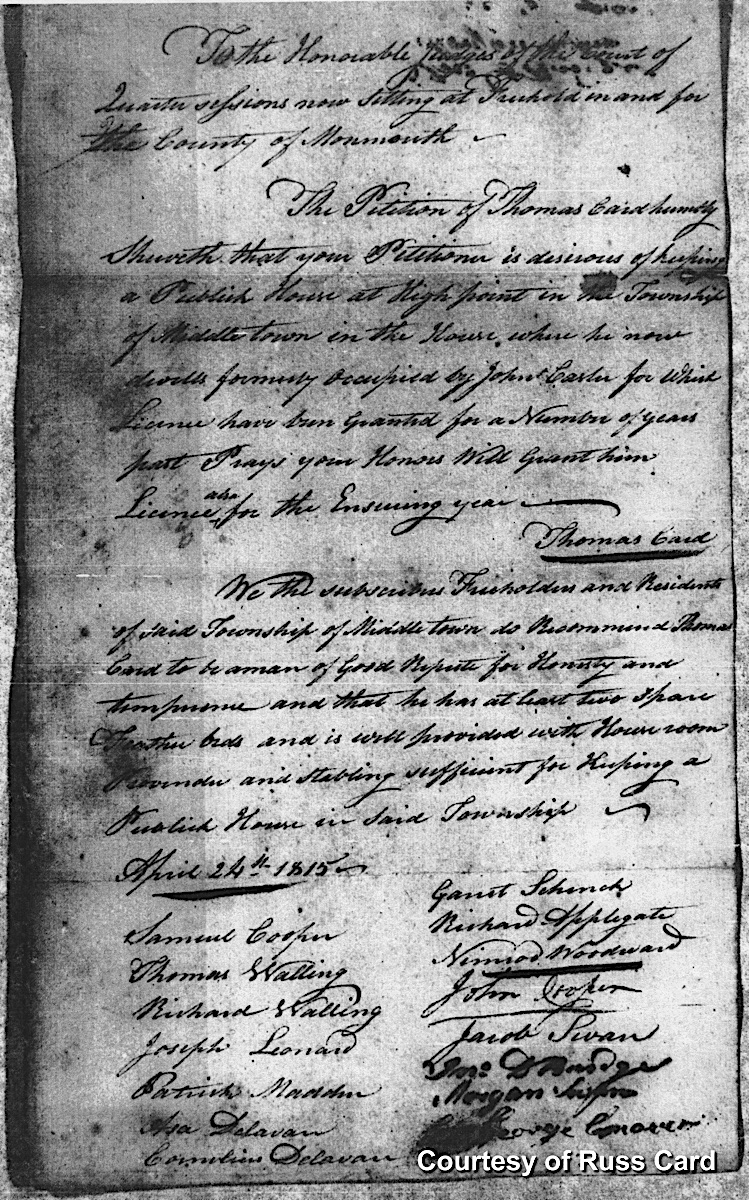 To the Honorable Judges of the Court of
Quarter sessions now sitting at Freehold in and for
the County of Monmouth
The Petition of Thomas Card humbly
Sheweth that your Petitioner is desirous of keeping
a Publick House at High point in the Township
of Middletown in the House where he now
dwells formerly Occupied by John Carter for which
Licence have been Granted for a Number of years
past Prays your Honors Will Grant him
Licence also for the Ensuing year
Thomas Card
We the subscribers Freeholders and Residents
of said Township of Middletown do Recommend Thomas
Card to be a man of Good Repute for Honesty and
temperence and that he has at least two spare
Feather beds and is well provided with House room
Provender and stabling sufficient for Keeping a
Publick House in Said Township
April 24th 1815
Samuel Cooper
Thomas Walling
Richard Walling
Joseph Leonard
Patrick Madden
Asa Delavan
Cornelius Delavan
Garret Schenck
Richard Applegate
Nimrod Woodward
John Cooper
Jacob Swan
Morgan
George Conover
Courtesy of Russ Card